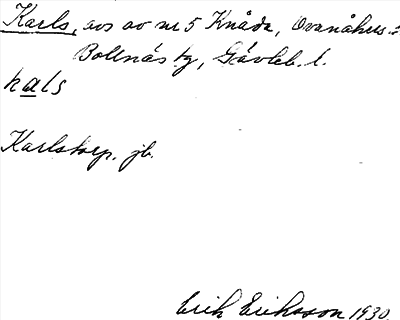 Karls, avs av nr 5 Knåda, Ovanåkers
Bollnäs tg, Gävleb. l.
kals
Karlstorp. jb.
Erik Eriksson 1930.